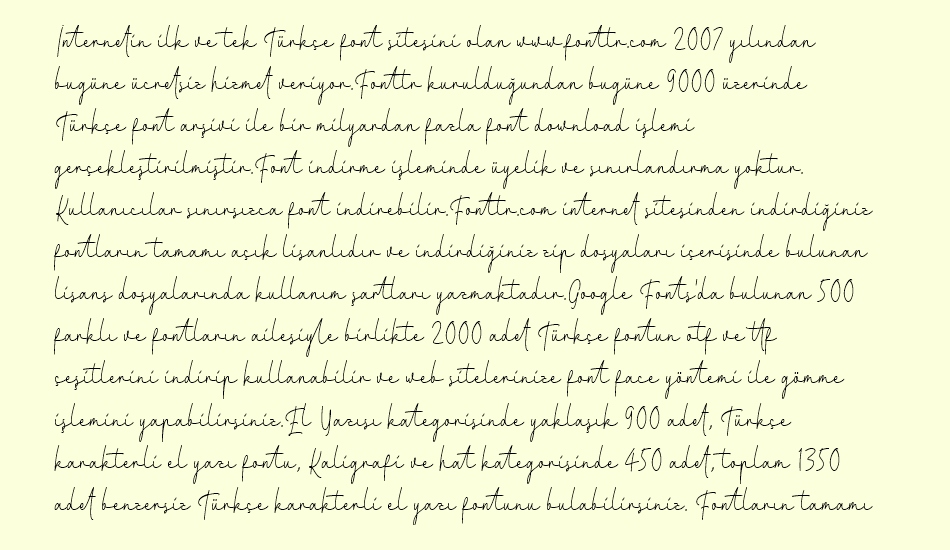 İnternetin ilk ve tek Türkçe font sitesini olan www.fonttr.com 2007 yılından
bugüne ücretsiz hizmet veriyor.Fonttr kurulduğundan bugüne 9000 üzerinde
Türkçe font arşivi ile bir milyardan fazla font download işlemi
gerçekleştirilmiştir.Font indirme işleminde üyelik ve sınırlandırma yoktur.
Kullanıcılar sınırsızca font indirebilir.Fonttr.com internet sitesinden indirdiğiniz
fontların tamamı açık lisanlıdır ve indirdiğiniz zip dosyaları içerisinde bulunan
lisans dosyalarında kullanım şartları yazmaktadır.Google Fonts'da bulunan 500
farklı ve fontların ailesiyle birlikte 2000 adet Türkçe fontun otf ve ttf
çeşitlerini indirip kullanabilir ve web sitelerinize font face yöntemi ile gömme
işlemini yapabilirsiniz.El Yazısı kategorisinde yaklaşık 900 adet, Türkçe
karakterli el yazı fontu, Kaligrafi ve hat kategorisinde 450 adet,toplam 1350
adet benzersiz Türkçe karakterli el yazı fontunu bulabilirsiniz. Fontların tamamı